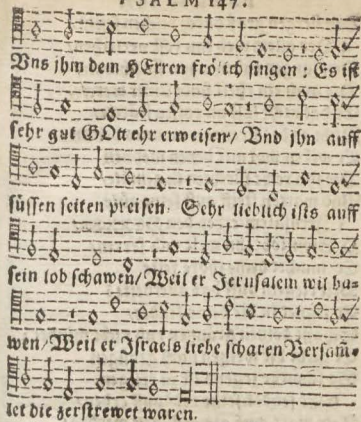 PSALM 147.
Vns jhm dem HErren frölich singen : Es ist
sehr gut GOtt ehr erweisen/ Vnd jhn auff
süssen seiten preisen. Sehr lieblich ists auff
sein lob schawen/ Weil er Jerusalem wil ba-
wen/ Weil er Israels liebe scharen Versam̃-
let die zerstrewet waren.